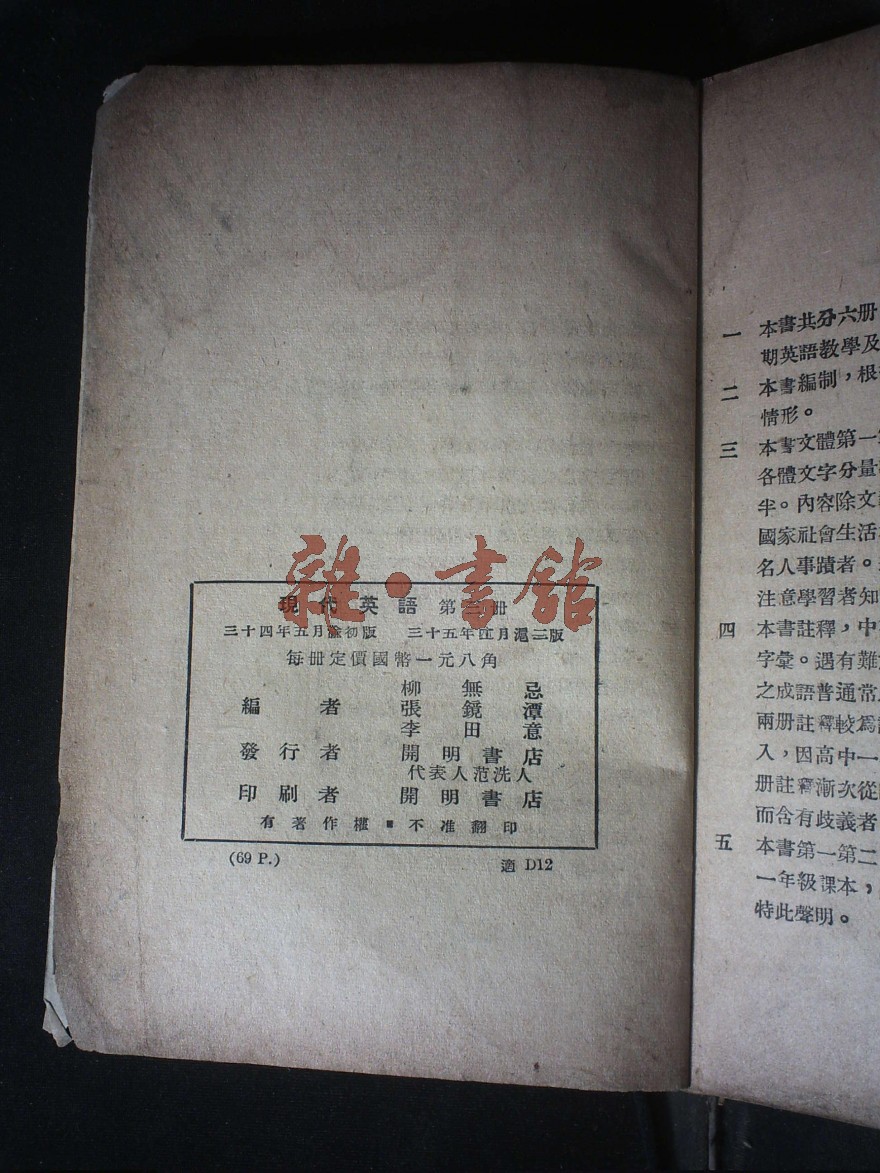 雜·書館
現代英語 第三册
三十四年五月渝初版 三十五年 月滬二版
每册定價國幣一元八角
編者 柳無忌
張鏡潭
李田意
發行者 開明書店
代表人范洗人
印刷者 開明書店
有著作權■不准翻印
(69 P.) 適 D12
一 本書共分六册
期英語教學及
二 本書編制,根
情形。
三 本書文體第一
各體文字分量
半。內容除文
國家社會生活
名人事蹟者。
注意學習者知
四 本書註釋,中
字彙。遇有難
之成語普通常
兩册註釋較爲
入,因高中一
册註釋漸次從
而含有歧義者
五 本書第一第二
一年級課本,
特此聲明。